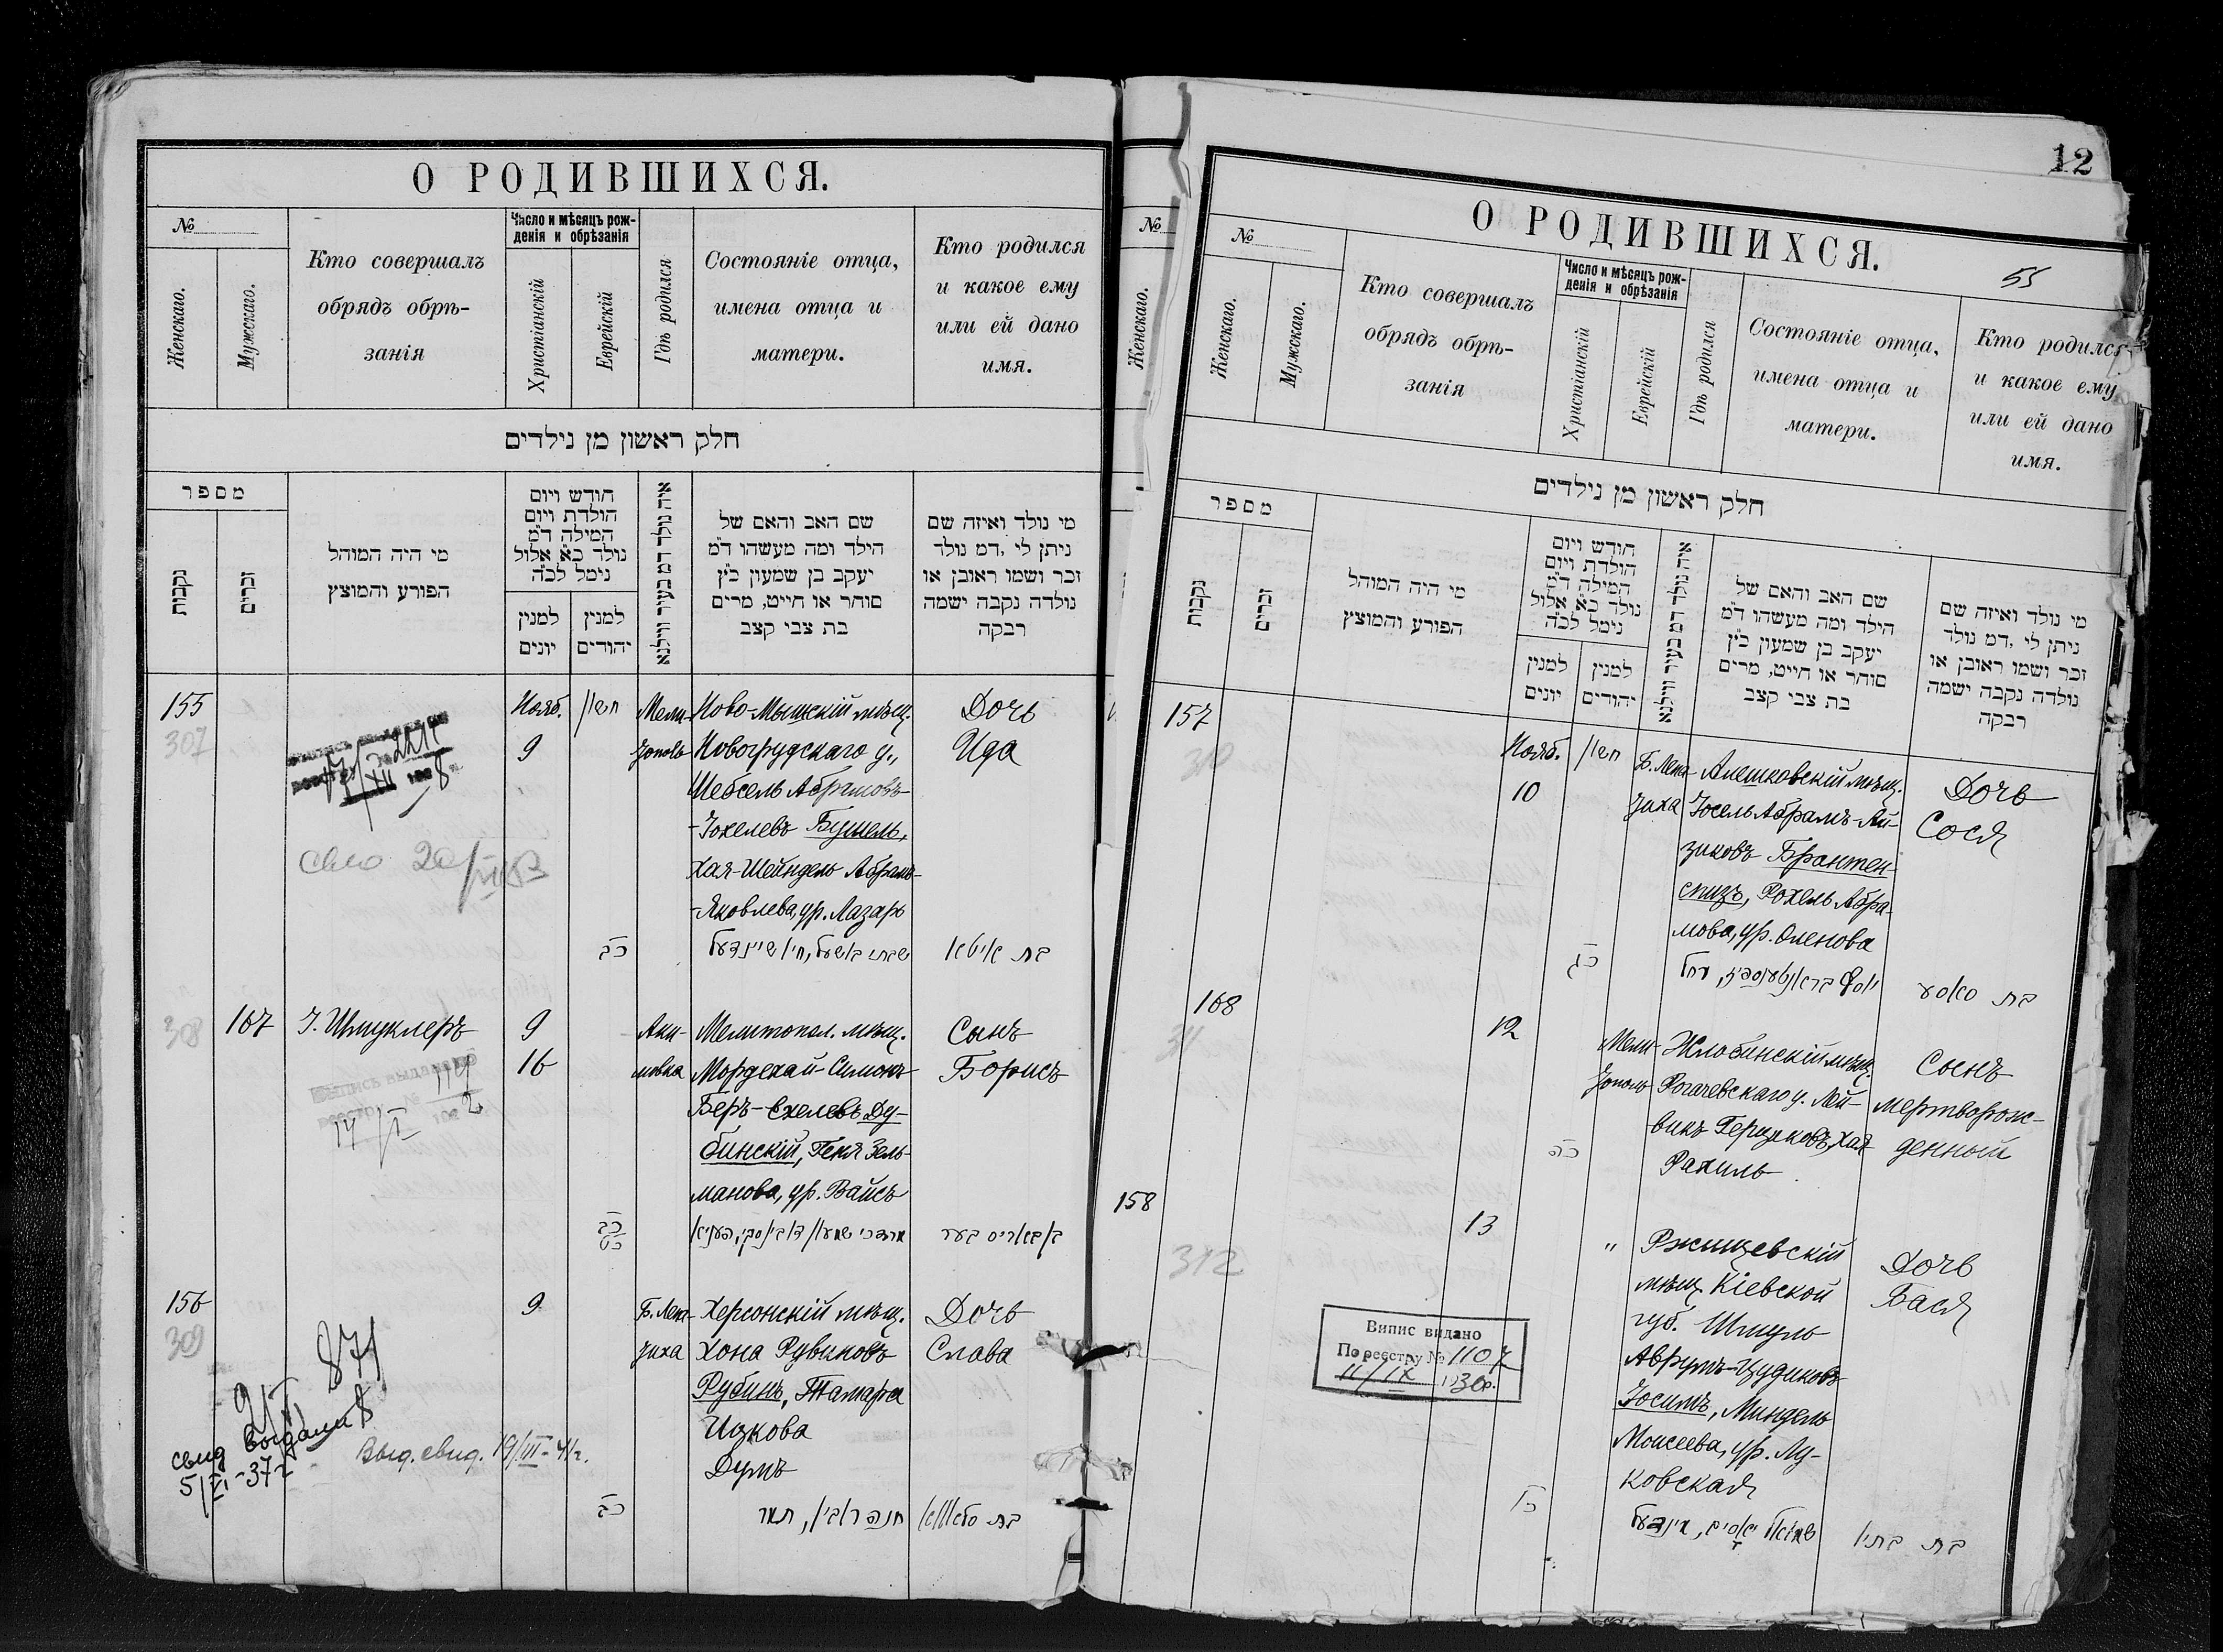 О РОДИВШИХСЯ.
№
Женскаго.
Мужскаго.
Кто совершалъ
обрядъ обрѣ-
занія
Число и мѣсяцъ рож-
денія и обрѣзанія
Христіанскій
Еврейскій
Гдѣ родился
Состояніе отца,
имена отца и
матери.
Кто родился
и какое ему
или ей дано
имя.
חלק ראשון מן נילדים
מספר
נקבות
זכרים
מי היה המוהל
הפורע והמוצץ
חודש ויום
הולדת ויום
המילה ד"מ
נולד כ"א אלול
נימל לכ"ה
למנין
יונים
למנין
יהודים
איה נולד דמ בעיר ווילנא
שם האב והאם של
הילד ומה מעשהו ד"מ
יעקב בן שמעון כ"ץ
סוחר או חייט, מרים
בת צבי קצב
מי נולד ואיזה שם
ניתן לי ,דמ נולד
זכר ושמו ראובן או
נולדה נקבה ישמה
רבקה
155
307
Нояб.
9
חשון
Мели-
тополь
Ново-Мышскій мѣщ.
Новогрудскаго у.,
Шебсель Абрамовъ-
-Іохелевъ Бушель,
Хая-Шейндель Абрамъ-
-Яковлева, ур. Лазарь
Дочь
Ида
כב
בת איטא
308
167
І. Шмуклеръ
9
16
Аки-
мовка
Мелитопол. мѣщ.
Мордехай-Симонъ
Беръ-Ехелевъ Ду-
бинскій, Геня Зель-
манова, ур. Вайсъ
Сынъ
Борисъ
14/I
כב
כט
156
309
9
Б. Лепа-
тиха
Херсонскій мѣщ.
Хона Рувиновъ
Рубинъ, Тамара
Ицкова
Думъ
Дочь
Слава
871
свид выдали
5/VI-37г
Выд. свид. 19/III-41г.
כב
12
О РОДИВШИХСЯ.
55
№
Женскаго.
Мужскаго.
Кто совершалъ
обрядъ обрѣ-
занія
Число и мѣсяцъ рож-
денія и обрѣзанія
Христіанскій
Еврейскій
Гдѣ родился
Состояніе отца,
имена отца и
матери.
Кто родился
и какое ему
или ей дано
имя.
חלק ראשון מן נילדים
מספר
נקבות
זכרים
מי היה המוהל
הפורע והמוצץ
חודש ויום
הולדת ויום
המילה ד"מ
נולד כ"א אלול
נימל לכ"ה
למנין
יונים
למנין
יהודים
איה נולד דמ בעיר ווילנא
שם האב והאם של
הילד ומה מעשהו ד"מ
יעקב בן שמעון כ"ץ
סוחר או חייט, מרים
בת צבי קצב
מי נולד ואיזה שם
ניתן לי ,דמ נולד
זכר ושמו ראובן או
נולדה נקבה ישמה
רבקה
157
310
Нояб.
10
חשון
Б. Лепа-
тиха
Алешковскій мѣщ.
Іосель Абрамъ-Ай-
зиковъ Брантен-
спизъ, Рохель Абра-
мова, ур. Оленова
Дочь
Сося
כג
168
311
12
Мели-
тополь
Жлобинскій мѣщ.
Рогачевскаго у. Лей-
викъ Герцуковъ, Хая
Рахиль
Сынъ
мертворож-
денный
כה
158
312
13
"
Ржищевскій
мѣщ. Кіевской
губ. Шмуль
Аврумъ-Цудиковъ
Іосимъ, Миндель
Моисеева, ур. Лу-
ковская
Дочь
Бася
Випис видано
По реєстру № 1107
11/IX 1930р.
כו
בת בתיא